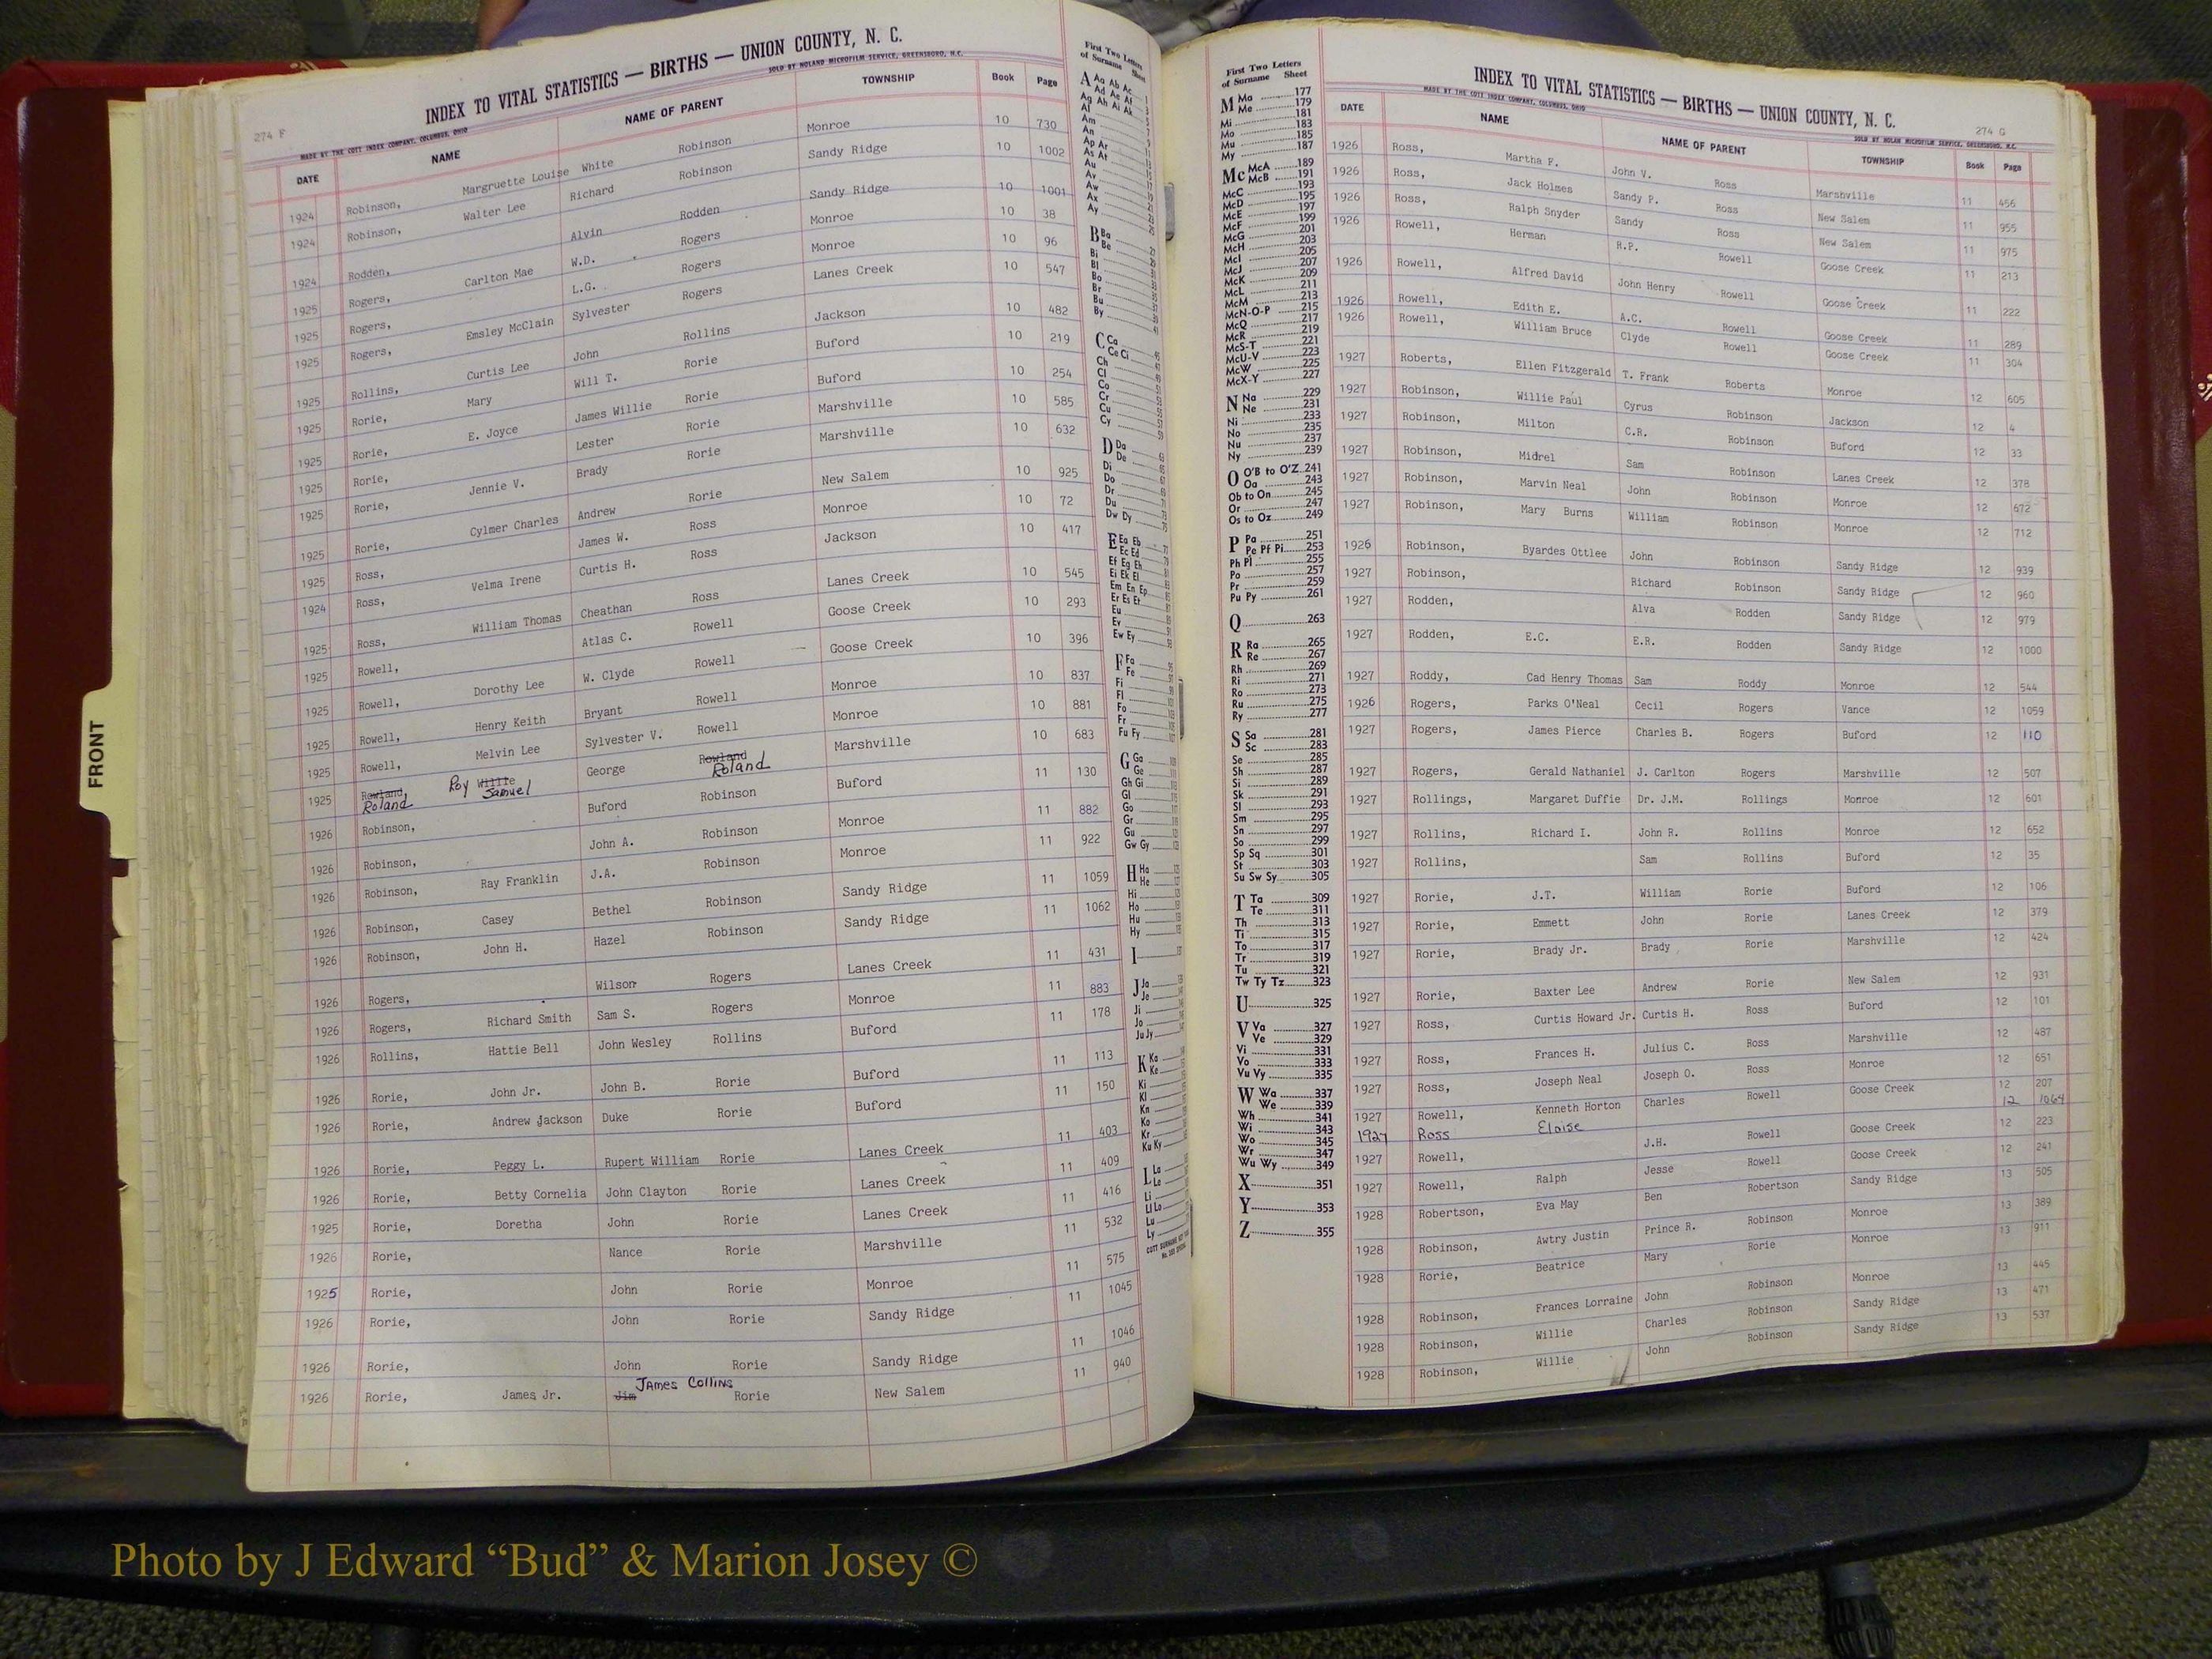 274 F
INDEX TO VITAL STATISTICS — BIRTHS — UNION COUNTY, N. C.
MADE BY THE COTT INDEX COMPANY, COLUMBUS, OHIO SOLD BY NOLAND MICROFILM SERVICE, GREENSBORO, N.C.
DATE NAME NAME OF PARENT TOWNSHIP Book Page
1924 Robinson, Margruette Louise White Robinson Monroe 10 730
1924 Robinson, Walter Lee Richard Robinson Sandy Ridge 10 1002
1924 Rodden, Alvin Rodden Sandy Ridge 10 1001
1925 Rogers, Carlton Mae W.D. Rogers Monroe 10 38
1925 Rogers, L.G. Rogers Monroe 10 96
1925 Rogers, Emsley McClain Sylvester Rogers Lanes Creek 10 547
1925 Rollins, Curtis Lee John Rollins Jackson 10 482
1925 Rorie, Mary Will T. Rorie Buford 10 219
1925 Rorie, E. Joyce James Willie Rorie Buford 10 254
1925 Rorie, Lester Rorie Marshville 10 585
1925 Rorie, Jennie V. Brady Rorie Marshville 10 632
1925 Rorie, Cylmer Charles Andrew Rorie New Salem 10 925
1925 Ross, James W. Ross Monroe 10 72
1924 Ross, Velma Irene Curtis H. Ross Jackson 10 417
1925 Ross, William Thomas Cheathan Ross Lanes Creek 10 545
1925 Rowell, Atlas C. Rowell Goose Creek 10 293
1925 Rowell, Dorothy Lee W. Clyde Rowell Goose Creek 10 396
1925 Rowell, Henry Keith Bryant Rowell Monroe 10 837
1925 Rowell, Melvin Lee Sylvester V. Rowell Monroe 10 881
1925 Rowland, Roy Willie George Rowland Marshville 10 683
Roland Samuel Roland
1926 Robinson, Buford Robinson Buford 11 130
1926 Robinson, John A. Robinson Monroe 11 882
1926 Robinson, Ray Franklin J.A. Robinson Monroe 11 922
1926 Robinson, Casey Bethel Robinson Sandy Ridge 11 1059
1926 Robinson, John H. Hazel Robinson Sandy Ridge 11 1062
1926 Rogers, Wilson Rogers Lanes Creek 11 431
1926 Rogers, Richard Smith Sam S. Rogers Monroe 11 883
1926 Rollins, Hattie Bell John Wesley Rollins Buford 11 178
1926 Rorie, John Jr. John B. Rorie Buford 11 113
1926 Rorie, Andrew Jackson Duke Rorie Buford 11 150
1926 Rorie, Peggy L. Rupert William Rorie Lanes Creek 11 403
1926 Rorie, Betty Cornelia John Clayton Rorie Lanes Creek 11 409
1925 Rorie, Doretha John Rorie Lanes Creek 11 416
1926 Rorie, Nance Rorie Marshville 11 532
1925 Rorie, John Rorie Monroe 11 575
1926 Rorie, John Rorie Sandy Ridge 11 1045
1926 Rorie, John Rorie Sandy Ridge 11 1046
James Collins
1926 Rorie, James Jr. Jim Rorie New Salem 11 940
FRONT
First Two Letters
of Surname Sheet
A Aa Ab Ac
Ad Ae Af
Ag Ah Ai Ak
Al
Am
An
Ap Ar
As At
Au
Av
Aw
Ax
Ay
B Ba
Be
Bi
Bl
Bo
Br
Bu
By
C Ca
Ce Ci
Ch
Cl
Co
Cr
Cu
Cy
D Da
De
Di
Do
Dr
Du
Dw Dy
E Ea Eb
Ec Ed
Ef Eg Eh
Ei Ek El
Em En Ep
Er Es Et
Eu
Ev
Ew Ey
F Fa
Fe
Fi
Fl
Fo
Fr
Fu Fy
G Ga
Ge
Gh Gi
Gl
Go
Gr
Gu
Gw Gy
H Ha
He
Hi
Ho
Hu
Hy
I
J Ja
Je
Ji
Jo
Ju Jy
K Ka
Ke
Ki
Kl
Kn
Ko
Kr
Ku Ky
L La
Le
Li
Ll Lo
Lu
Ly
First Two Letters
of Surname Sheet
M Ma 177
Me 179
Mi 181
Mo 183
Mu 185
My 187
Mc McA 189
McB 191
McC 193
McD 195
McE 197
McF 199
McG 201
McH 203
McI 205
McJ 207
McK 209
McL 211
McM 213
McN-O-P 215
McQ 217
McR 219
McS-T 221
McU-V 223
McW 225
McX-Y 227
N Na 229
Ne 231
Ni 233
No 235
Nu 237
Ny 239
O O'B to O'Z 241
Oa 243
Ob to On 245
Or 247
Os to Oz 249
P Pa 251
Pe Pf Pi 253
Ph Pl 255
Po 257
Pr 259
Pu Py 261
Q 263
R Ra 265
Re 267
Rh 269
Ri 271
Ro 273
Ru 275
Ry 277
S Sa 281
Sc 283
Se 285
Sh 287
Si 289
Sk 291
Sl 293
Sm 295
Sn 297
So 299
Sp Sq 301
St 303
Su Sw Sy 305
T Ta 309
Te 311
Th 313
Ti 315
To 317
Tr 319
Tu 321
Tw Ty Tz 323
U 325
V Va 327
Ve 329
Vi 331
Vo 333
Vu Vy 335
W Wa 337
We 339
Wh 341
Wi 343
Wo 345
Wr 347
Wu Wy 349
X 351
Y 353
Z 355
274 G
INDEX TO VITAL STATISTICS — BIRTHS — UNION COUNTY, N. C.
MADE BY THE COTT INDEX COMPANY, COLUMBUS, OHIO SOLD BY NOLAN MICROFILM SERVICE, GREENSBORO, N.C.
DATE NAME NAME OF PARENT TOWNSHIP Book Page
1926 Ross, Martha F. John V. Ross Marshville 11 456
1926 Ross, Jack Holmes Sandy P. Ross New Salem 11 955
1926 Ross, Ralph Snyder Sandy Ross New Salem 11 975
1926 Rowell, Herman R.P. Rowell Goose Creek 11 213
1926 Rowell, Alfred David John Henry Rowell Goose Creek 11 222
1926 Rowell, Edith E. A.C. Rowell Goose Creek 11 289
1926 Rowell, William Bruce Clyde Rowell Goose Creek 11 304
1927 Roberts, Ellen Fitzgerald T. Frank Roberts Monroe 12 605
1927 Robinson, Willie Paul Cyrus Robinson Jackson 12 4
1927 Robinson, Milton C.R. Robinson Buford 12 33
1927 Robinson, Midrel Sam Robinson Lanes Creek 12 378
1927 Robinson, Marvin Neal John Robinson Monroe 12 672
1927 Robinson, Mary Burns William Robinson Monroe 12 712
1926 Robinson, Byardes Ottlee John Robinson Sandy Ridge 12 939
1927 Robinson, Richard Robinson Sandy Ridge 12 960
1927 Rodden, Alva Rodden Sandy Ridge 12 979
1927 Rodden, E.C. E.R. Rodden Sandy Ridge 12 1000
1927 Roddy, Cad Henry Thomas Sam Roddy Monroe 12 544
1926 Rogers, Parks O'Neal Cecil Rogers Vance 12 1059
1927 Rogers, James Pierce Charles B. Rogers Buford 12 110
1927 Rogers, Gerald Nathaniel J. Carlton Rogers Marshville 12 507
1927 Rollings, Margaret Duffie Dr. J.M. Rollings Monroe 12 601
1927 Rollins, Richard I. John R. Rollins Monroe 12 652
1927 Rollins, Sam Rollins Buford 12 35
1927 Rorie, J.T. William Rorie Buford 12 106
1927 Rorie, Emmett John Rorie Lanes Creek 12 379
1927 Rorie, Brady Jr. Brady Rorie Marshville 12 424
1927 Rorie, Baxter Lee Andrew Rorie New Salem 12 931
1927 Ross, Curtis Howard Jr. Curtis H. Ross Buford 12 101
1927 Ross, Frances H. Julius C. Ross Marshville 12 487
1927 Ross, Joseph Neal Joseph O. Ross Monroe 12 651
1927 Rowell, Kenneth Horton Charles Rowell Goose Creek 12 207
1927 Ross Eloise 12 1064
1927 Rowell, J.H. Rowell Goose Creek 12 223
1927 Rowell, Ralph Jesse Rowell Goose Creek 12 241
1928 Robertson, Eva May Ben Robertson Sandy Ridge 13 505
1928 Robinson, Awtry Justin Prince R. Robinson Monroe 13 389
1928 Rorie, Beatrice Mary Rorie Monroe 13 911
1928 Robinson, Frances Lorraine John Robinson Monroe 13 445
1928 Robinson, Willie Charles Robinson Sandy Ridge 13 471
1928 Robinson, Willie John Robinson Sandy Ridge 13 537
Photo by J Edward “Bud” & Marion Josey ©